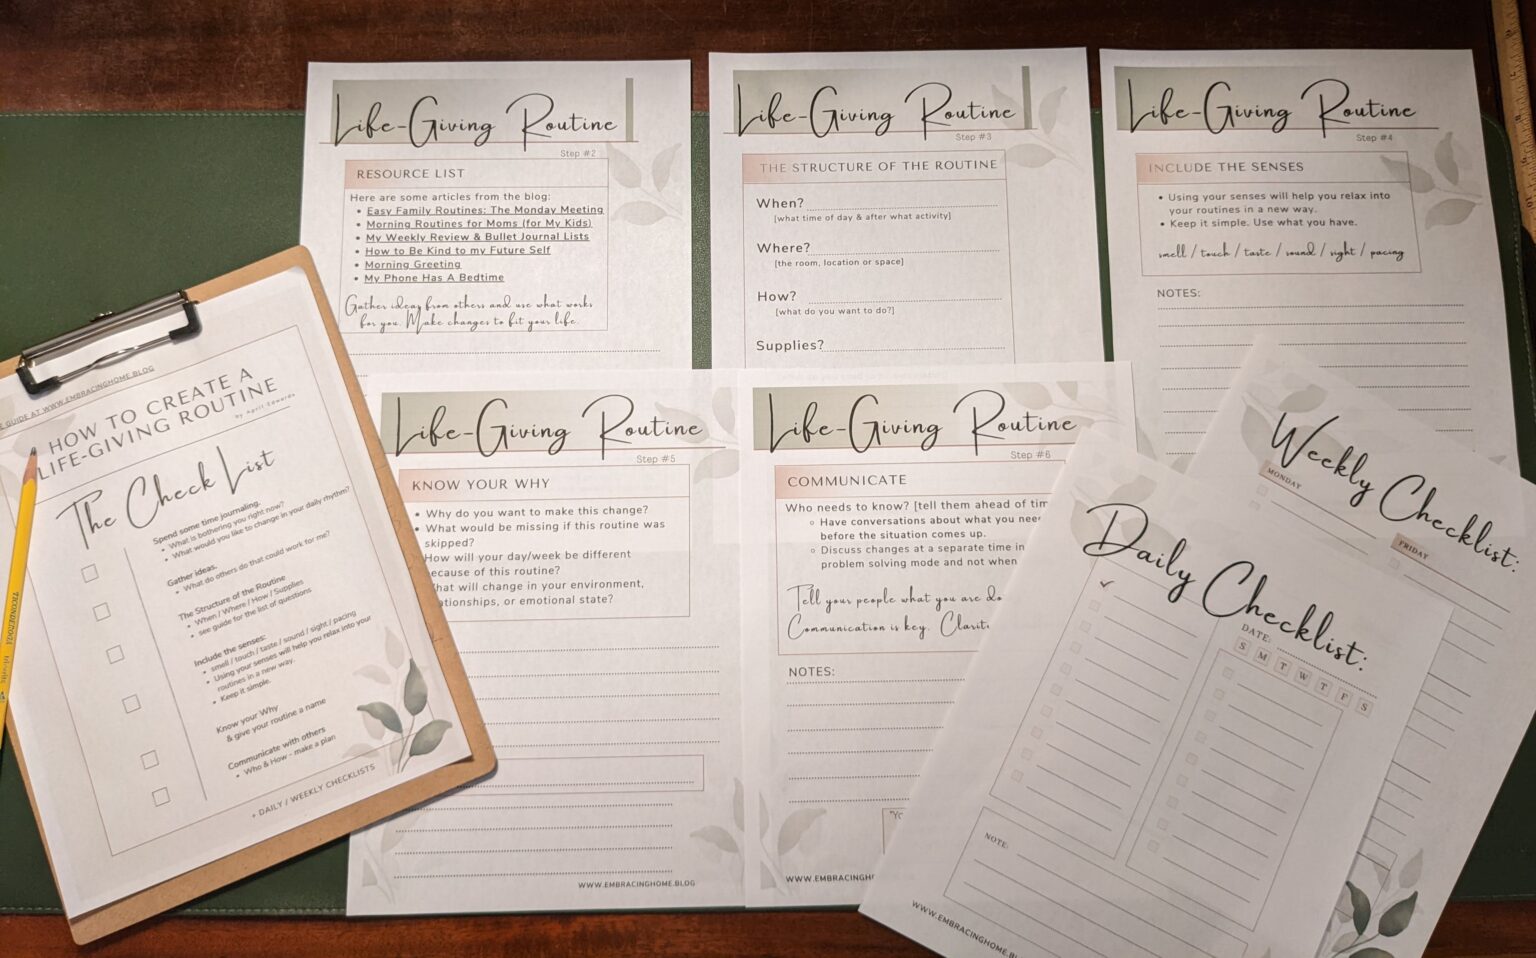 Life-Giving Routine
Step #2
RESOURCE LIST
Here are some articles from the blog:
• Easy Family Routines: The Monday Meeting
• Morning Routines for Moms (for My Kids)
• My Weekly Review & Bullet Journal Lists
• How to Be Kind to my Future Self
• Morning Greeting
• My Phone Has A Bedtime
Gather ideas from others and use what works
for you. Make changes to fit your life.
Life-Giving Routine
Step #3
THE STRUCTURE OF THE ROUTINE
When?
[what time of day & after what activity]
Where?
[the room, location or space]
How?
[what do you want to do?]
Supplies?
Life-Giving Routine
Step #4
INCLUDE THE SENSES
• Using your senses will help you relax into
your routines in a new way.
• Keep it simple. Use what you have.
smell / touch / taste / sound / sight / pacing
NOTES:
GUIDE AT WWW.EMBRACINGHOME.BLOG
HOW TO CREATE A
LIFE-GIVING ROUTINE
by April Edwards
The Check List
Spend some time journaling.
• What is bothering you right now?
• What would you like to change in your daily rhythm?
Gather ideas.
• What do others do that could work for me?
The Structure of the Routine
• When / Where / How / Supplies
• see guide for the list of questions
Include the senses:
• smell / touch / taste / sound / sight / pacing
• Using your senses will help you relax into your
routines in a new way.
• Keep it simple.
Know your Why
& give your routine a name
Communicate with others
• Who & How - make a plan
+ DAILY / WEEKLY CHECKLISTS
TICONDEROGA
Life-Giving Routine
Step #5
KNOW YOUR WHY
• Why do you want to make this change?
• What would be missing if this routine was
skipped?
How will your day/week be different
because of this routine?
What will change in your environment,
relationships, or emotional state?
WWW.EMBRACINGHOME.BLOG
Life-Giving Routine
Step #6
COMMUNICATE
Who needs to know? [tell them ahead of tim
○ Have conversations about what you need
before the situation comes up.
○ Discuss changes at a separate time in
problem solving mode and not when
Tell your people what you are do
Communication is key. Clarit
NOTES:
"Yo
WWW.EMBRACINGH
Weekly Checklist:
MONDAY
FRIDAY
Daily Checklist:
DATE:
S M T W T F S
NOTE:
WWW.EMBRACINGHOME.BL